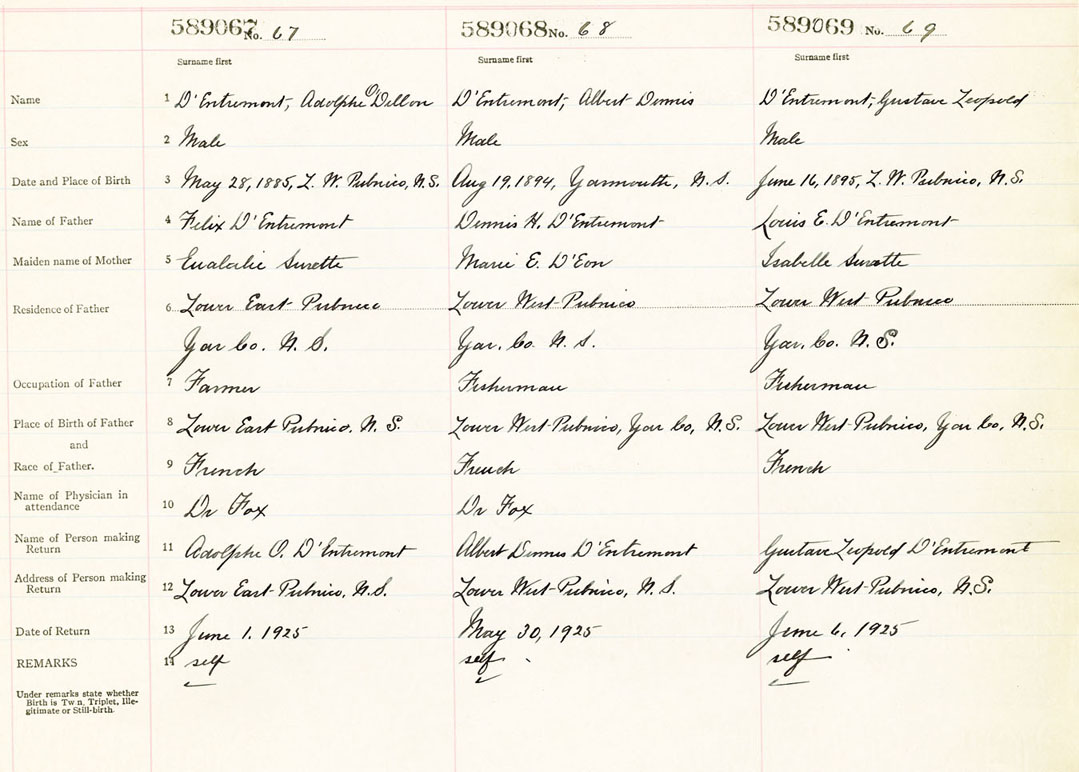 589067 No. 67 589068 No. 68 589069 No. 69
Surname first Surname first Surname first
Name 1 D'Entremont, Adolphe O'Dellon D'Entremont, Albert Dennis D'Entremont, Gustave Leopold
Sex 2 Male Male Male
Date and Place of Birth 3 May 28, 1885, L. W. Pubnico, N.S. Aug 19, 1894, Yarmouth, N.S. June 16, 1895, L. W. Pubnico, N.S.
Name of Father 4 Felix D'Entremont Dennis H. D'Entremont Louis E. D'Entremont
Maiden name of Mother 5 Eualalie Surette Marie E. D'Eon Isabelle Surette
Residence of Father 6 Lower East Pubnico Lower West Pubnico Lower West Pubnico
Yar Co. N. S. Yar. Co. N. S. Yar. Co. N. S.
Occupation of Father 7 Farmer Fisherman Fisherman
Place of Birth of Father 8 Lower East Pubnico, N. S. Lower West Pubnico, Yar Co, N.S. Lower West Pubnico, Yar Co, N.S.
and
Race of Father. 9 French French French
Name of Physician in attendance 10 Dr Fox Dr Fox
Name of Person making Return 11 Adolphe O. D'Entremont Albert Dennis D'Entremont Gustave Leopold D'Entremont
Address of Person making Return 12 Lower East Pubnico, N.S. Lower West Pubnico, N.S. Lower West Pubnico, N.S.
Date of Return 13 June 1. 1925 May 30, 1925 June 6, 1925
REMARKS 14 self self self
Under remarks state whether
Birth is Tw n, Triplet, Ille-
gitimate or Still-birth.